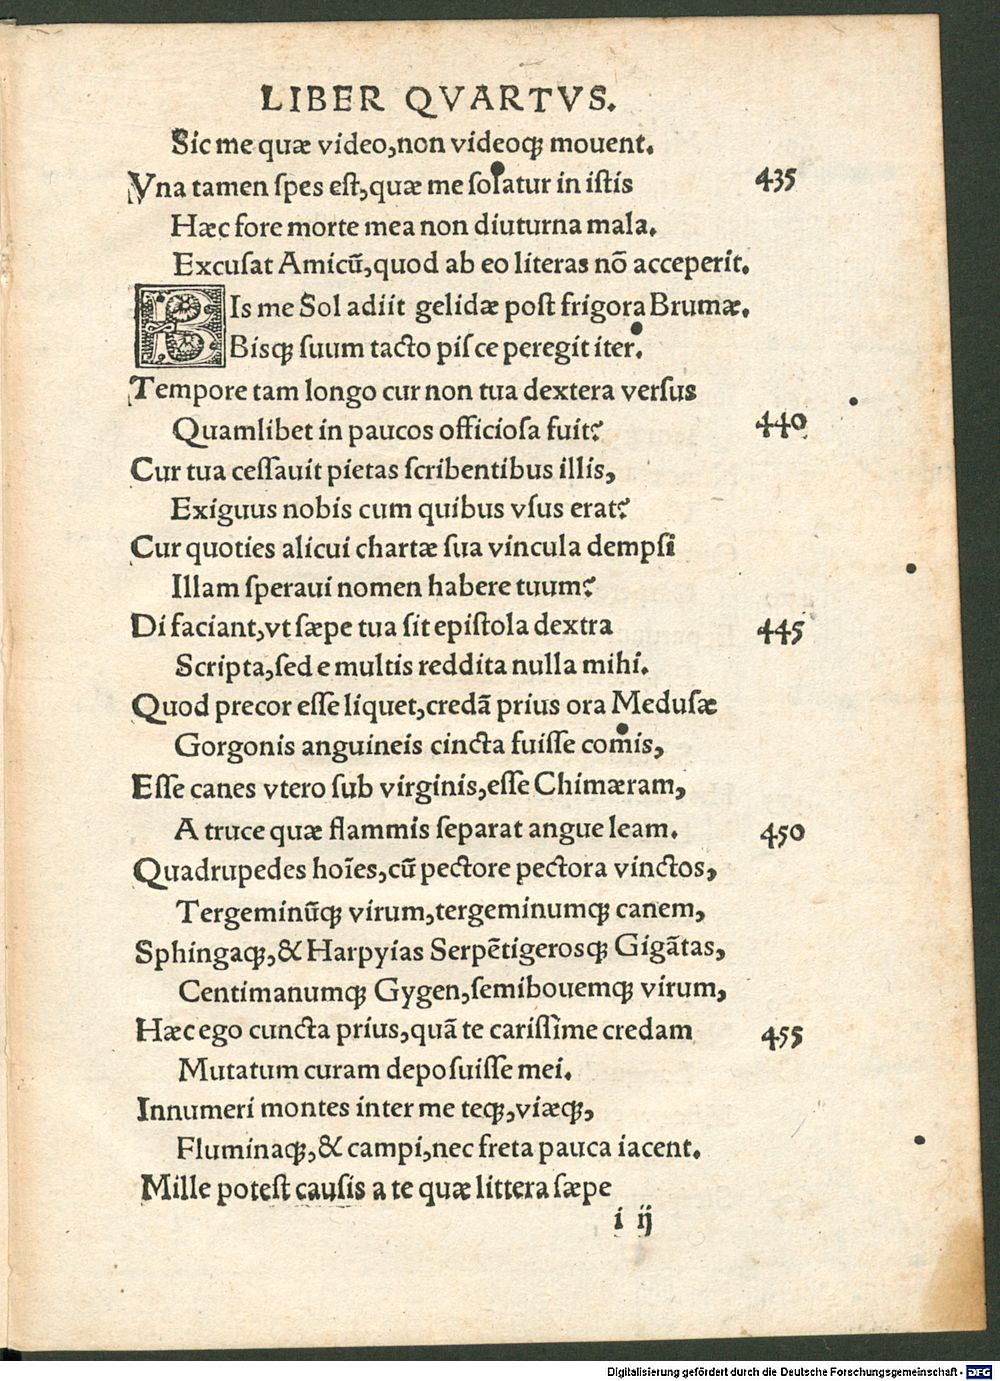 LIBER QVARTVS.
Sic me quæ video,non videoqꝫ mouent.
Vna tamen ſpes eſt,quæ me ſolatur in iſtis 435
Hæc fore morte mea non diuturna mala.
Excuſat Amicū,quod ab eo literas nō acceperit.
BIs me Sol adiit gelidæ poſt frigora Brumæ.
Bisqꝫ ſuum tacto piſce peregit iter.
Tempore tam longo cur non tua dextera verſus
Quamlibet in paucos officioſa fuit? 440
Cur tua ceſſauit pietas ſcribentibus illis,
Exiguus nobis cum quibus vſus erat?
Cur quoties alicui chartæ ſua vincula dempſi
Illam ſperaui nomen habere tuum?
Di faciant,vt ſæpe tua ſit epiſtola dextra 445
Scripta,ſed e multis reddita nulla mihi.
Quod precor eſſe liquet,credā prius ora Meduſæ
Gorgonis anguineis cincta fuiſſe comis,
Eſſe canes vtero ſub virginis,eſſe Chimæram,
A truce quæ flammis ſeparat angue leam. 450
Quadrupedes hoīes,cū pectore pectora vinctos,
Tergeminūqꝫ virum,tergeminumqꝫ canem,
Sphingaqꝫ,& Harpyias Serpētigerosqꝫ Gigātas,
Centimanumqꝫ Gygen,ſemibouemqꝫ virum,
Hæc ego cuncta prius,quā te cariſſime credam 455
Mutatum curam depoſuiſſe mei.
Innumeri montes inter me teqꝫ,viæqꝫ,
Fluminaqꝫ,& campi,nec freta pauca iacent.
Mille poteſt cauſis a te quæ littera ſæpe
i ij
Digitalisierung gefördert durch die Deutsche Forschungsgemeinschaft - DFG